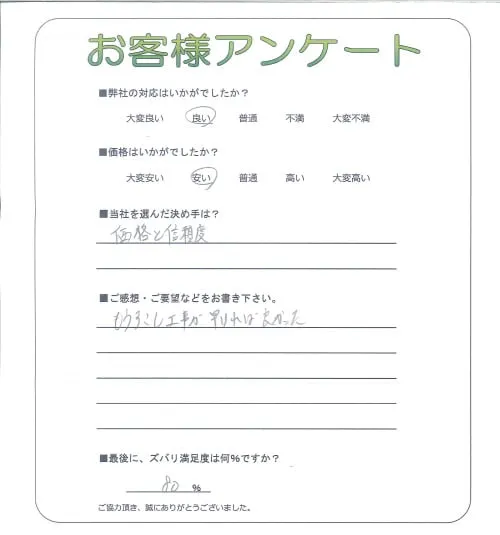 お客様アンケート
■弊社の対応はいかがでしたか？
大変良い 良い 普通 不満 大変不満
■価格はいかがでしたか？
大変安い 安い 普通 高い 大変高い
■当社を選んだ決め手は？
価格と信頼度
■ご感想・ご要望などをお書き下さい。
もう少し工事が早ければ良かった
■最後に、ズバリ満足度は何％ですか？
80 ％
ご協力頂き、誠にありがとうございました。